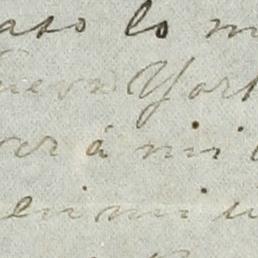 aso lo m
ueva York
ver á mi
en mi u